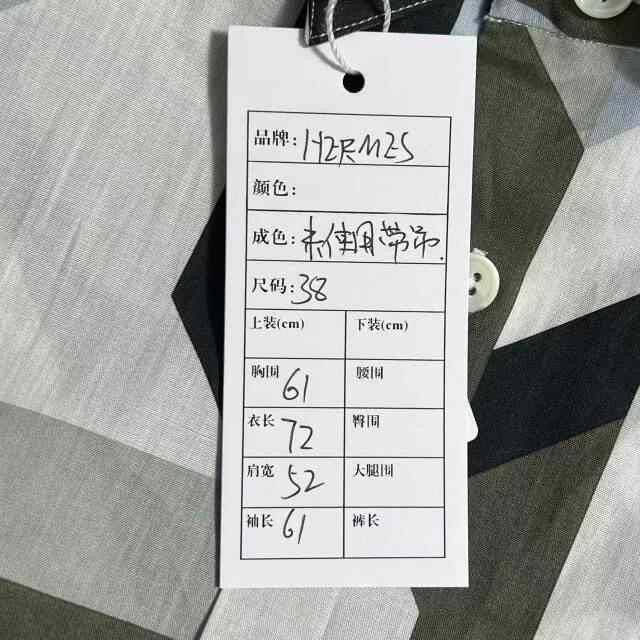 品牌: HERMES
颜色:
成色: 未使用带吊.
尺码: 38
上装(cm) 下装(cm)
胸围 61 腰围
衣长 72 臀围
肩宽 52 大腿围
袖长 61 裤长